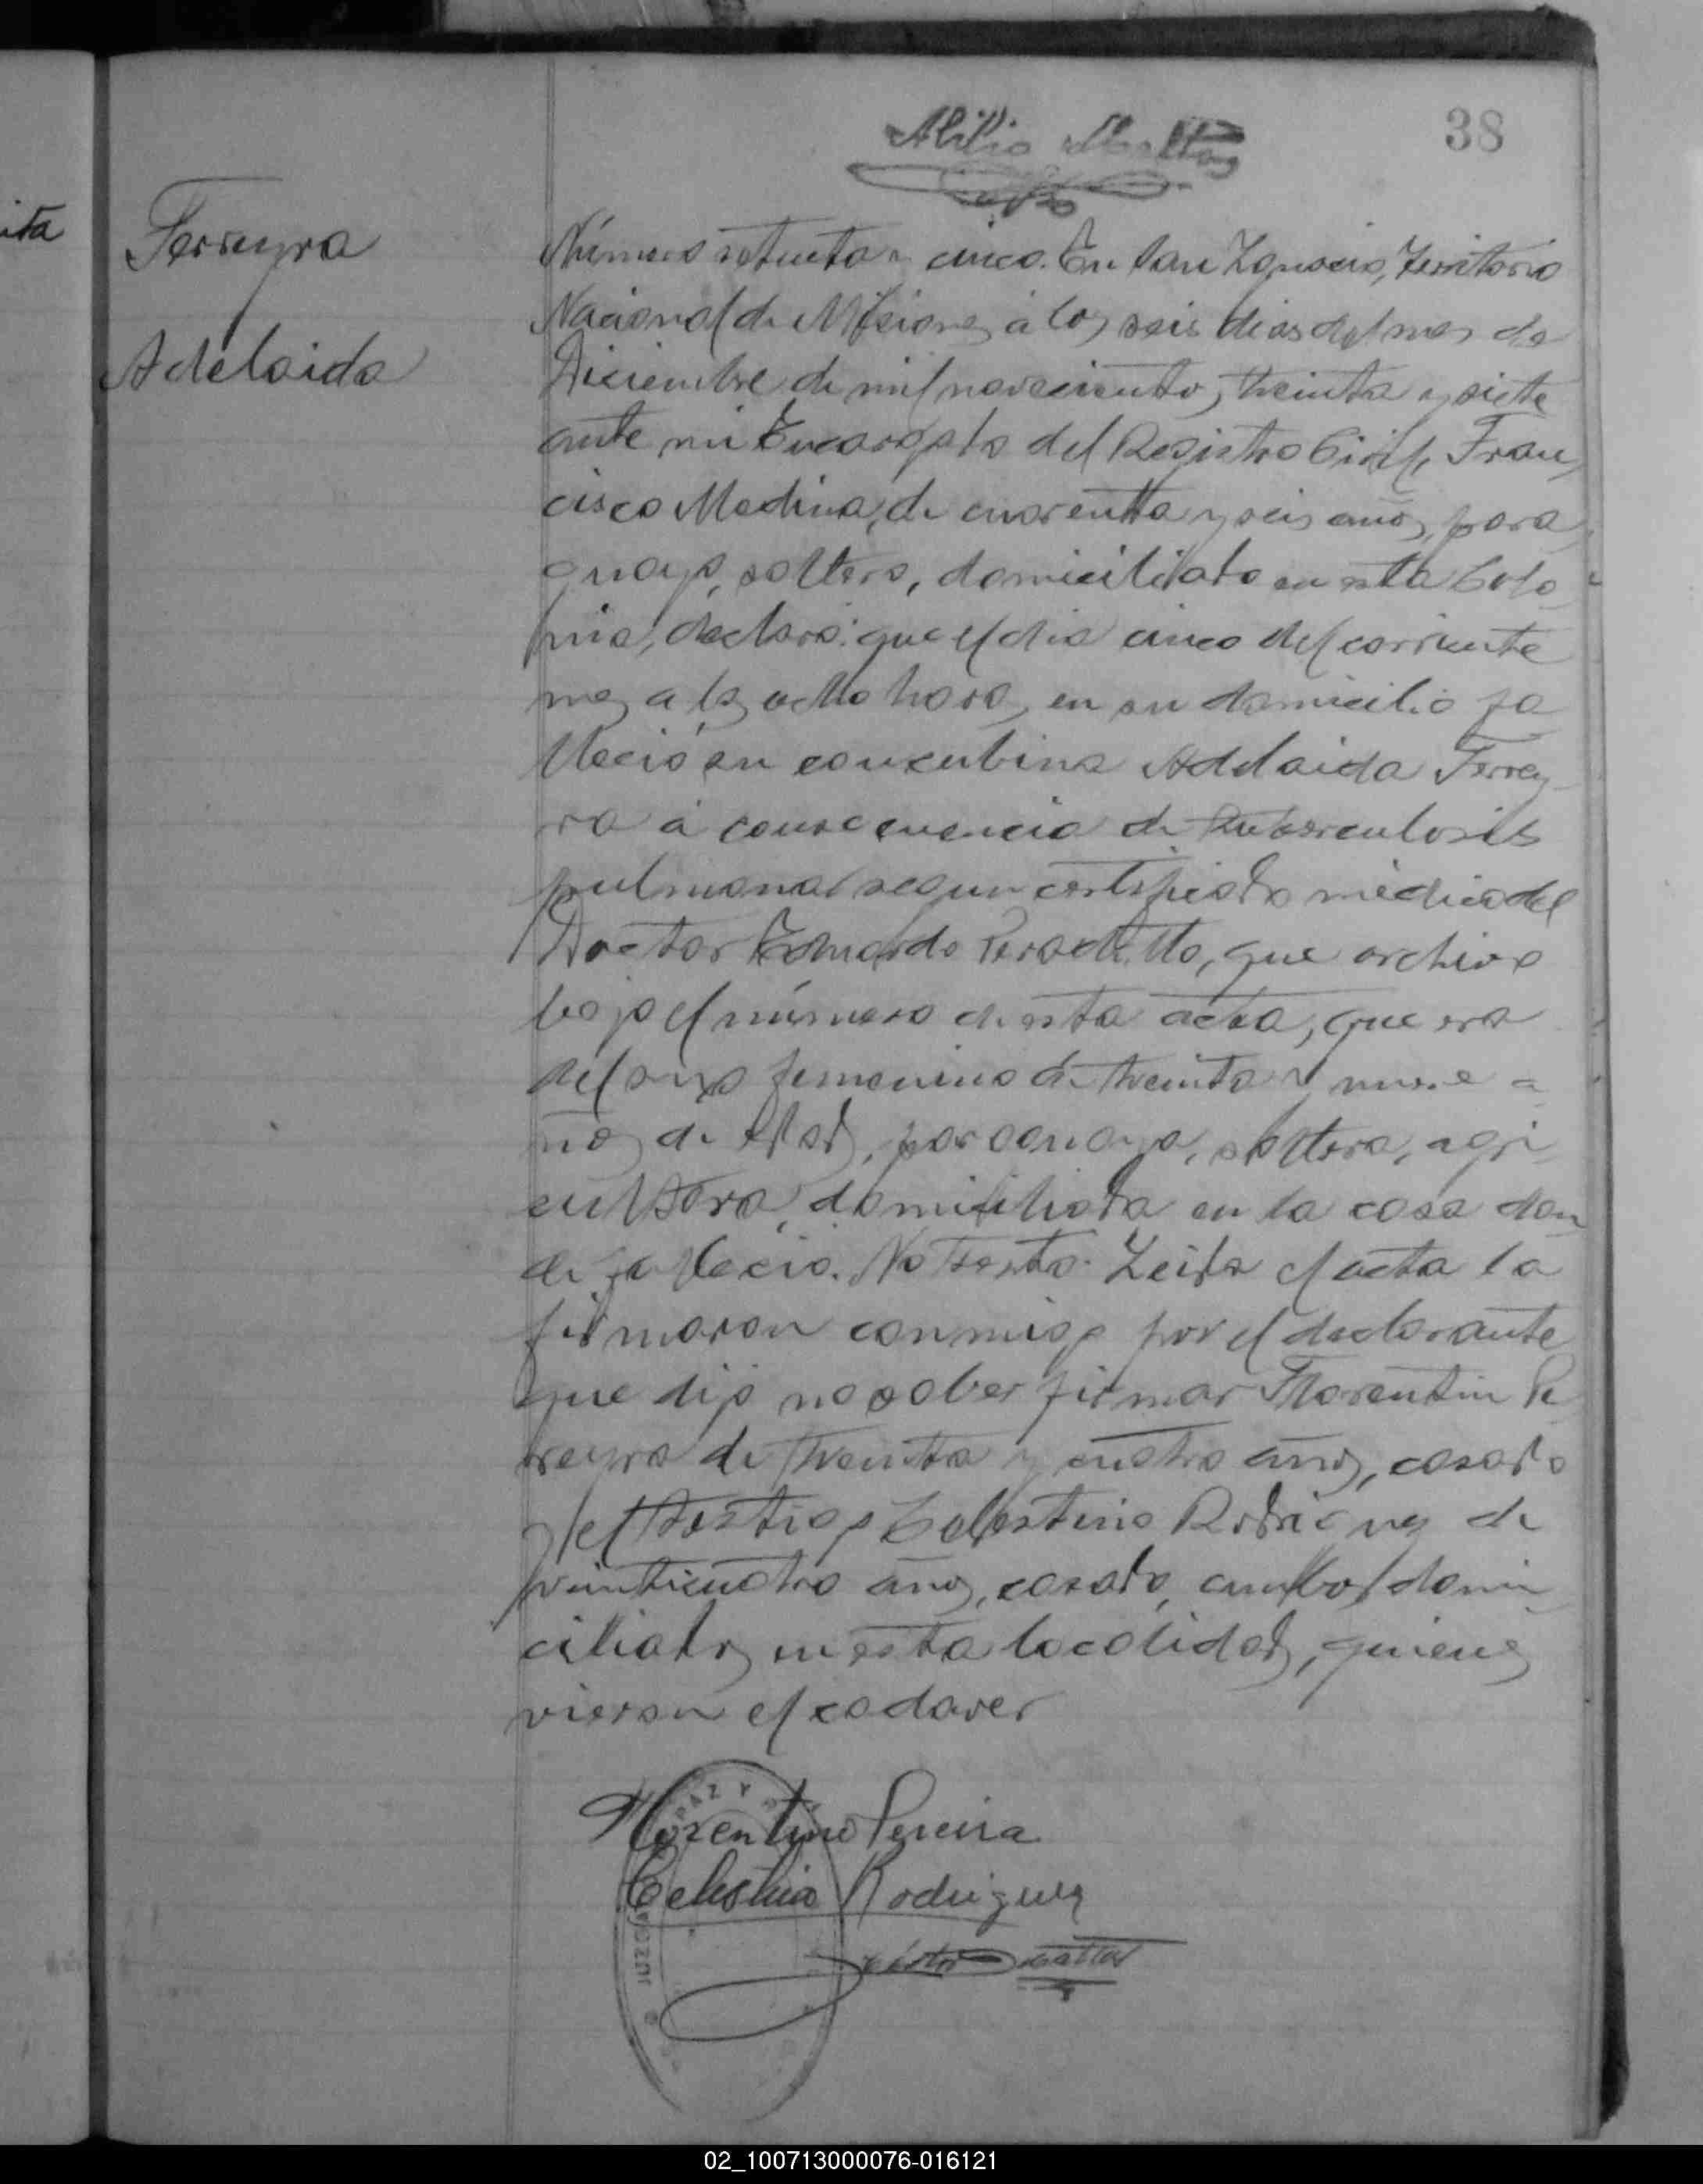 38
ita
Ferreyra
Adelaida
Número setenta y cinco. En San Ignacio, Territorio
Nacional de Misiones a los seis dias del mes de
Diciembre de mil novecientos treinta y siete
ante mi Encargado del Registro Civil, Fran
cisco Medina, de cuarenta y seis años, para
guayo, soltero, domiciliado en esta Colo
nia, declaró: que el dia cinco del corriente
mes a las ocho horas, en su domicilio fa
lleció su concubina Adelaida Ferrey
ra á consecuencia de tuberculosis
pulmonar segun certificado médico del
Doctor Eduardo, que archivo
bajo el número de esta acta, que era
del sexo femenino de treinta y nueve a
ños de edad, paraguaya, soltera, agri
cultora, domiciliada en la casa don
de falleció. No testó. Leida el acta la
firmaron conmigo por el declarante
que dijo no saber firmar Florentin Pe
reyra de treinta y cuatro años, casado
y el testigo Celestino Rodriguez de
veinticuatro años, casado, ambos domi
ciliados en esta localidad, quienes
vieron el cadaver
Florentino Pereira
Celestino Rodriguez
PAZ Y
JUZGADO
02_100713000076-016121